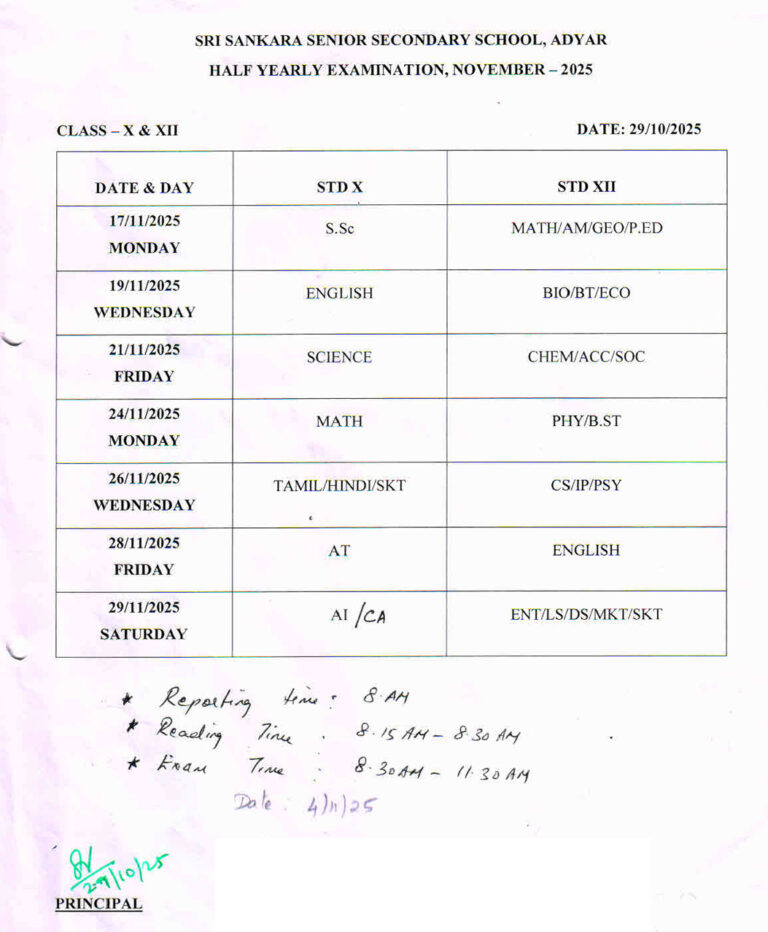 SRI SANKARA SENIOR SECONDARY SCHOOL, ADYAR
HALF YEARLY EXAMINATION, NOVEMBER – 2025
CLASS – X & XII DATE: 29/10/2025
DATE & DAY STD X STD XII
17/11/2025
MONDAY S.Sc MATH/AM/GEO/P.ED
19/11/2025
WEDNESDAY ENGLISH BIO/BT/ECO
21/11/2025
FRIDAY SCIENCE CHEM/ACC/SOC
24/11/2025
MONDAY MATH PHY/B.ST
26/11/2025
WEDNESDAY TAMIL/HINDI/SKT CS/IP/PSY
28/11/2025
FRIDAY AT ENGLISH
29/11/2025
SATURDAY AI /CA ENT/LS/DS/MKT/SKT
* Reporting time : 8 AM
* Reading Time : 8.15 AM – 8.30 AM
* Exam Time : 8.30 AM – 11.30 AM
Date : 4/11/25
29/10/25
PRINCIPAL